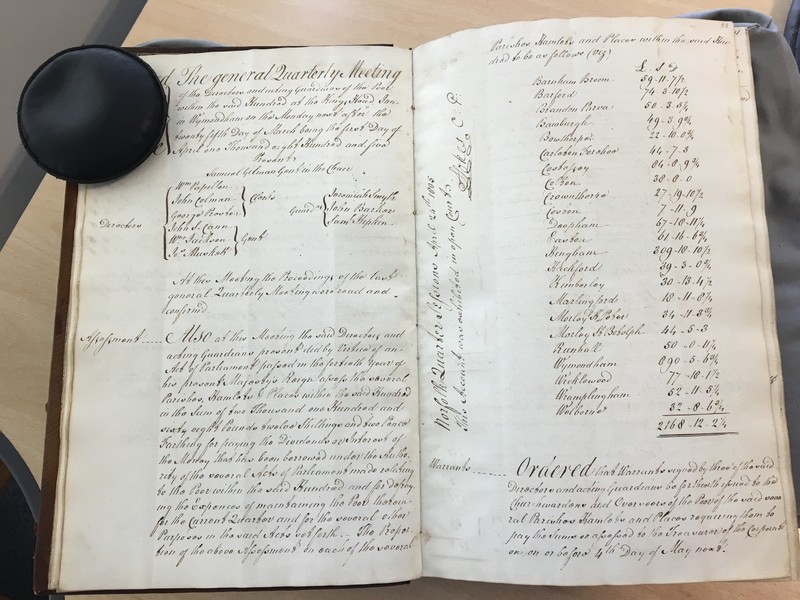 d The general Quarterly Meeting
of the Directors and acting Guardians of the Poor
within the said Hundred at the Kings Head Inn
in Wymondham on the Monday next after the
twenty fifth Day of March being the first Day of
April one Thousand and eight Hundred and five
Present
Samuel Gilman Gent in the Chair
Directors
Wm Papillon
John Colman
George Preston
Clerks
John S. Cann
Wm Jackson
Jos. Muskett
Gent
Guardns
Jeremiah Smyth
John Barker
Saml Stephen
At this Meeting the Proceedings of the last
general Quarterly Meeting were read and
confirmed
Assessment
Also at this Meeting the said Directors and
acting Guardians present did by Virtue of an
Act of Parliament passed in the fortieth Year of
his present Majestys Reign assess the several
Parishes, Hamlets & Places within the said Hundred
in the Sum of two Thousand one Hundred and
sixty eight Pounds twelve Shillings and two Pence
Farthing for paying the Dividends or Interest of
the Money that has been borrowed under the Autho-
rity of the several Acts of Parliament made relating
to the Poor within the said Hundred and for defray-
ing the Expences of maintaining the Poor therein
for the Current Quarter and for the several other
Purposes in the said Acts set forth. The Propor-
tion of the above Assessment on each of the several
Norfolk Quarter Sessions April 24th 1805
This Account was exhibited in open Court
C. P.
Parishes Hamlets and Places within the said Hun-
dred to be as follows (Viz)
£ S D
Barnham Broom 59-11-7½
Barford 74-3-10½
Brandon Parva 50-3-5¾
Bawburgh 49-3-9¾
Bowthorpe 22-10-0¾
Carleton Forehoe 44-7-3
Costessey 84-8-9¾
Colton 38-8-0
Crownthorpe 27-19-10½
Coston 7-11-9
Deopham 67-18-11¼
Easton 61-16-6¾
Hingham 309-18-10½
Hackford 39-3-0¾
Kimberley 30-13-4½
Marlingford 18-11-8¼
Morley St Peter 34-11-3¾
Morley St Botolph 44-5-3
Runhall 50-0-11¼
Wymondham 890-5-6¾
Wicklewood 77-10-1½
Wramplingham 52-11-5¼
Welborne 32-8-6¾
2168-12-2¼
Warrants
Ordered that Warrants signed by three of the said
Directors and acting Guardians be forthwith issued to the
Churchwardens and Overseers of the Poor of the said seve-
ral Parishes Hamlets and Places requiring them to
pay the Sums so assessed to the Treasurer of the Corporati-
on on or before 4th Day of May next.